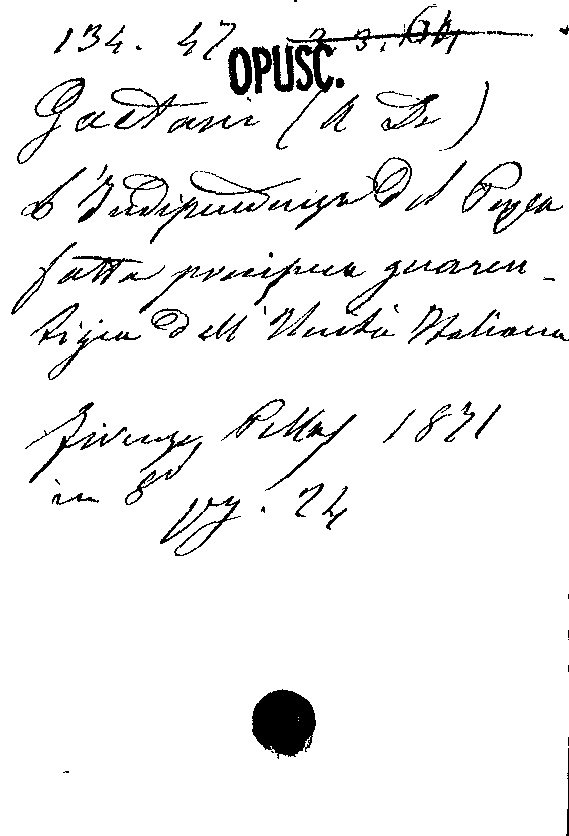 134. 47 2 3. 64
OPUSC.
Gaetani (A De)
L'Indipendenza del Papa
fatta precipua guaren-
tigia dell'Unità Italiana
Firenze, Pellas 1871
in 8°
pg. 24